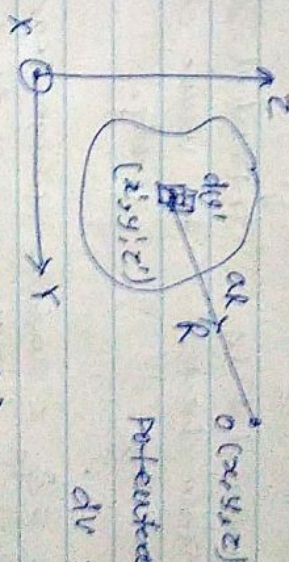 Z
dv'
(x',y',z')
aR
R
O(x,y,z)
X
Y
Potential
dv